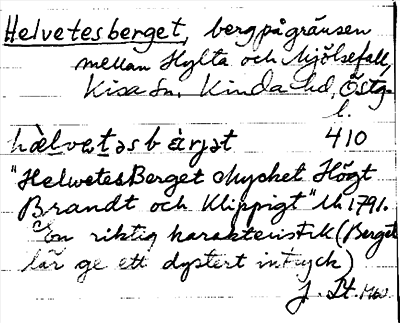 Helvetesberget, berg på gränsen
mellan Hylta och Mjölsefall,
Kisa sn. Kinda hd, Östg.
l.
hèlvetəsbærjət 410
"HelwetesBerget Mycket Högt
Brandt och Klippigt" Uh 1791.
En riktig karakteristik (Berget
lär ge ett dystert intryck)
J. St.